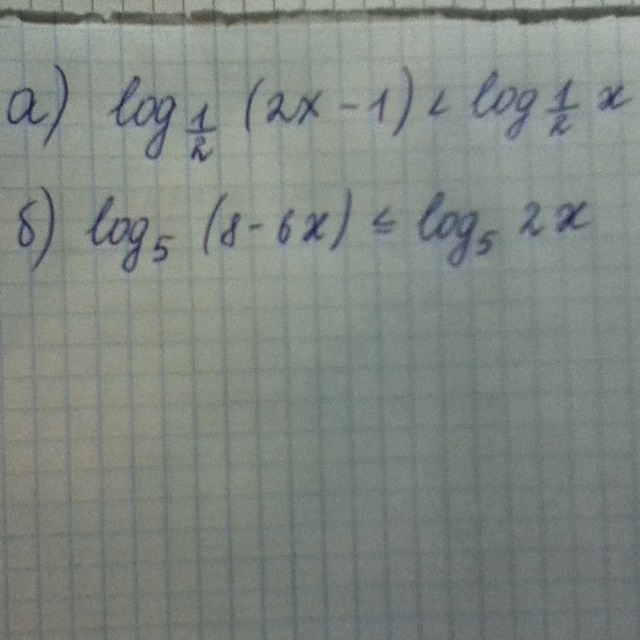 а) log 1/2 (2x-1) < log 1/2 x
б) log₅ (8-6x) ≤ log₅ 2x